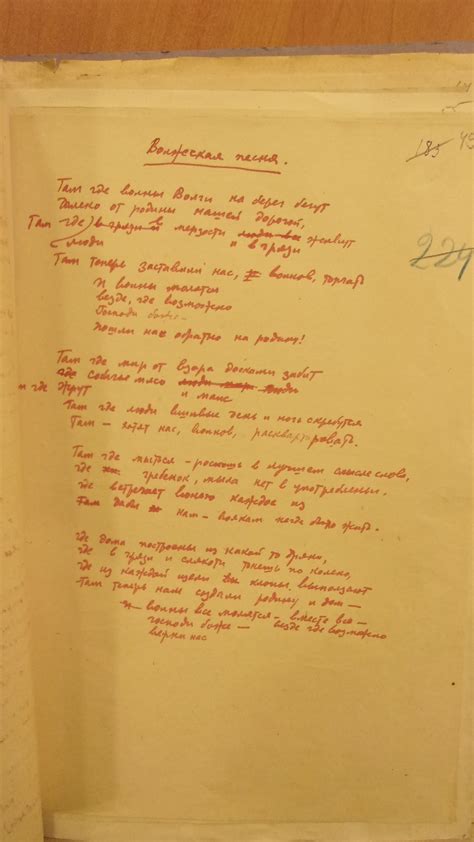 185 49
Волжеская песня.
224
Там где волны Волги на берег бегут
Далеко от родины нашей дорогой,
Там где в грязи и мерзости люди все живут
люди и в грязи
Там теперь заставили нас, воинов, торчать
И воины молятся
везде, где возможно
Господи боже
пошли нас обратно на родину!
Там где мир от взора досками забит
где собачье мясо люди
и где жрут и маис
Там где люди вшивые день и ночь скребутся
Там – хотят нас, воинов, расквартировать.
Там где мыться – роскошь в лучшем смысле слова,
где гребенок, мыла нет в употребленьи.
где встречает каждое из
там дали нам – воякам
где дома построены из какой то дряни,
где в грязи и слякоти тонешь по колено,
где из каждой щели клопы выползают
Там теперь нам создали родину и дом –
и – воины все молятся – вместе все –
господи боже – везде где возможно
верни нас